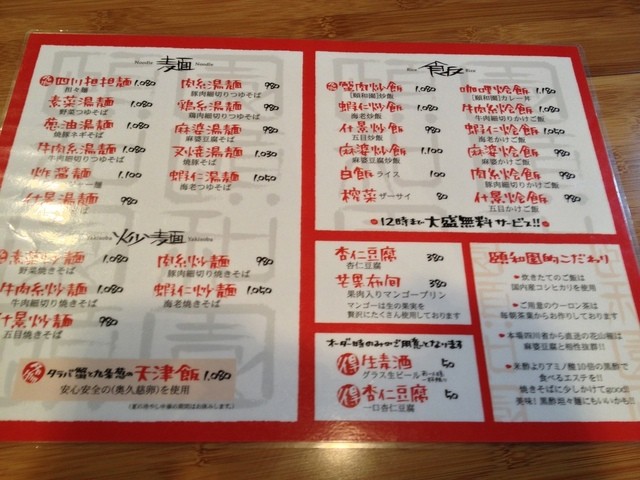 Noodle 麺 Noodle
四川担担麺 1.080
担々麺
素菜湯麺 1.080
野菜つゆそば
葱油湯麺 1.080
焼豚ネギそば
牛肉糸湯麺 1.080
牛肉細切りつゆそば
炸醤麺 1.100
什景湯麺 980
肉糸湯麺 980
豚肉細切りつゆそば
鶏糸湯麺 980
鶏肉細切りつゆそば
麻婆湯麺 980
麻婆豆腐そば
叉焼湯麺 1.030
焼豚そば
蝦仁湯麺 1.050
海老つゆそば
Yakisoba 炒麺 Yakisoba
素菜炒麺 1.080
野菜焼きそば
牛肉糸炒麺 1.080
牛肉細切り焼きそば
什景炒麺 980
五目焼きそば
肉糸炒麺 980
豚肉細切り焼きそば
蝦仁炒麺 1.050
海老焼きそば
タラバ蟹と九条葱の天津飯 1.080
安心安全の(奥久慈卵)を使用
Rice 飯 Rice
蟹肉炒飯 1.080
[頤和園]炒飯
蝦仁炒飯 1.080
海老炒飯
什景炒飯 980
五目炒飯
麻婆炒飯 1.100
麻婆豆腐炒飯
白飯 ライス 100
搾菜 ザーサイ 80
咖哩烩飯 1.180
[頤和園]カレー丼
牛肉糸烩飯 1.080
牛肉細切りかけご飯
蝦仁烩飯 1.050
海老かけご飯
麻婆烩飯 980
麻婆かけご飯
肉糸烩飯 980
豚肉細切りかけご飯
什景烩飯 980
五目かけご飯
12時まで大盛無料サービス!!
杏仁豆腐 380
杏仁豆腐
芒果布甸 380
果肉入りマンゴープリン
マンゴーは生の果実を
贅沢にたくさん使用しております
オーダー時のみのご用意となります
得 生麦酒 50
グラス生ビール
得 杏仁豆腐 50
一口杏仁豆腐
頤和園的こだわり
炊きたてのご飯は
国内産コシヒカリを使用
ご用意のウーロン茶は
毎朝茶葉からお作りしております
本場四川省から直送の花山椒は
麻婆豆腐と相性抜群!!
米酢よりアミノ酸10倍の黒酢で
食べるエステを!!
焼きそばに少しかけてgood!!
美味!黒酢坦々麺にもいいかも!!